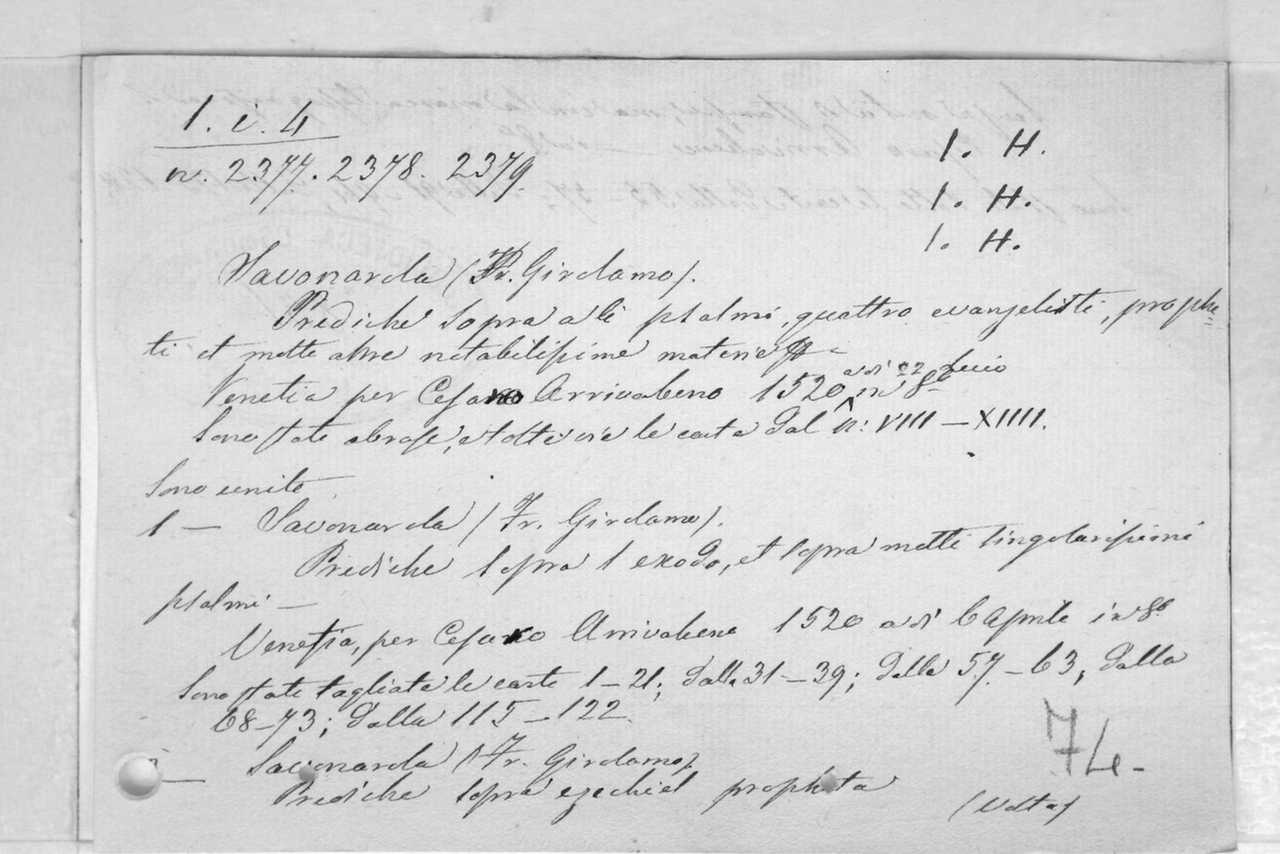 1. i. 4
n. 2377. 2378. 2379.
1. H.
1. H.
1. H.
Savonarola (Fr. Girolamo).
Prediche sopra ali psalmi, quattro evangelisti, prophe=
ti et molte altre notabilissime materie
Venetia per Cesaro Arrivabeno 1520 adi 22 in 8º
Sono state abrase, e tolte via le carte dal n: VIII — XIIII.
Sono unite
1 — Savonarola (Fr. Girolamo).
Prediche sopra l exodo, et sopra molti singularissimi
psalmi —
Venetia, per Cesaro Arrivabene 1520 a di 6 Aprile in 8º
Sono state tagliate le carte 1—21; dalla 31—39; dalla 57—63, dalla
68—73; dalla 115—122.
— Savonarola (Fr. Girolamo).
Prediche sopra ezechiel propheta
(volta)
74.